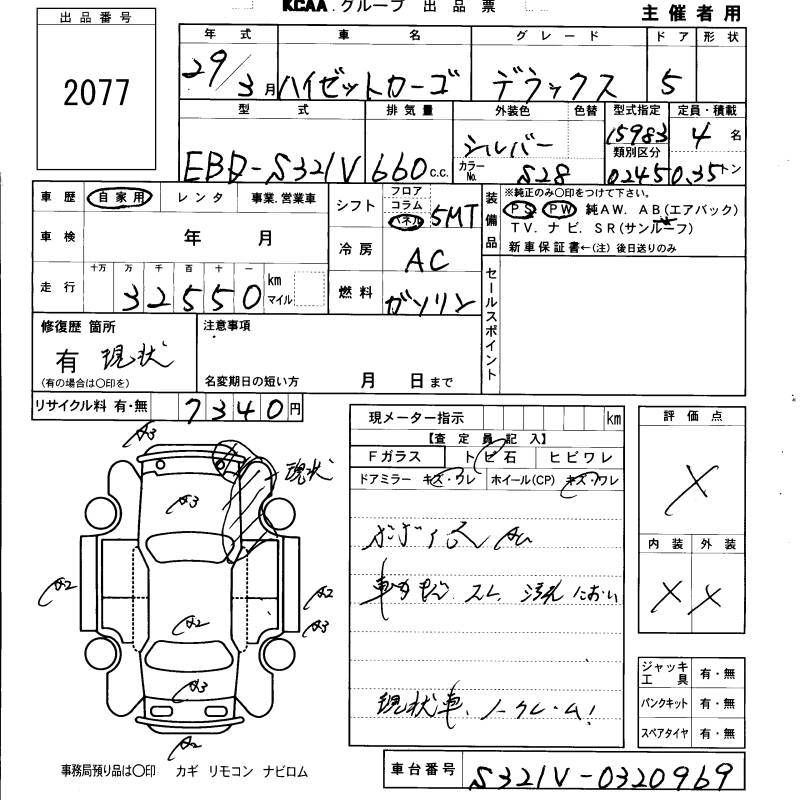 KCAA.グループ 出品票
主催者用
出品番号
2077
年式 車名 グレード ドア 形状
29/3月 ハイゼットカーゴ デラックス 5
型式 排気量 外装色 色替 型式指定 定員・積載
EBD-S321V 660c.c. シルバー 15983 4名
カラーNo. S28 類別区分 0245 0.35トン
車歴 自家用 レンタ 事業.営業車
車検 年 月
走行 十万 万 千 百 十 一 km マイル
32550
シフト フロア コラム パネル 5MT
冷房 AC
燃料 ガソリン
装備品 ※純正のみ〇印をつけて下さい。
PS PW 純AW. AB(エアバック)
TV. ナビ. SR(サンルーフ)
新車保証書←(注)後日送りのみ
セールスポイント
修復歴 箇所
有 現状
(有の場合は〇印を)
注意事項
名変期日の短い方 月 日まで
リサイクル料 有・無 7340円
現メーター指示 km
【査定員記入】
Fガラス トビ石 ヒビワレ
ドアミラー キズ・ワレ ホイール(CP) キズ・ワレ
車内 スレ 汚れ におい
現状車、ノークレーム!
評価点
X
内装 外装
X X
ジャッキ工具 有・無
パンクキット 有・無
スペアタイヤ 有・無
A3
現状
A3
A2
A2
A3
A2
A3
A2
事務局預り品は〇印 カギ リモコン ナビロム
車台番号 S321V-0320969